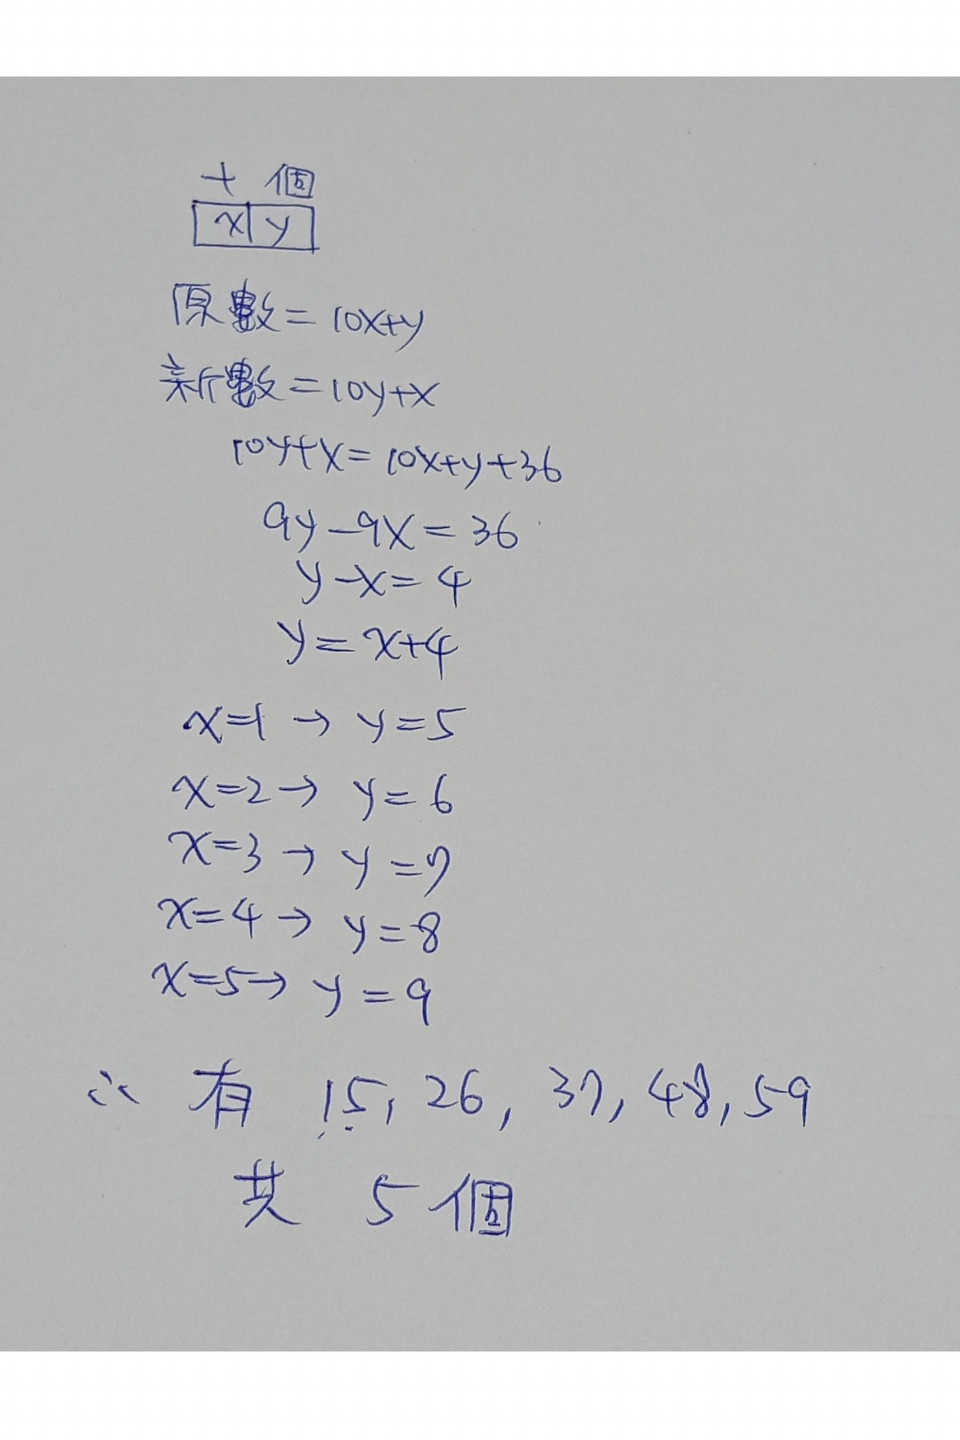 十 個
x y
原數=10x+y
新數=10y+x
10y+x=10x+y+36
9y-9x=36
y-x=4
y=x+4
x=1→y=5
x=2→y=6
x=3→y=7
x=4→y=8
x=5→y=9
∴有 15, 26, 37, 48, 59
共 5個